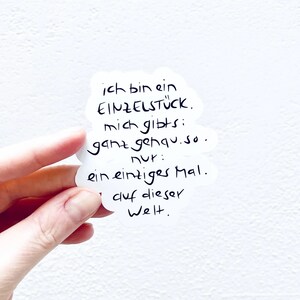 ich bin ein
EINZELSTÜCK.
mich gibts:
ganz genau.so.
nur:
ein einziges Mal.
auf dieser
Welt.